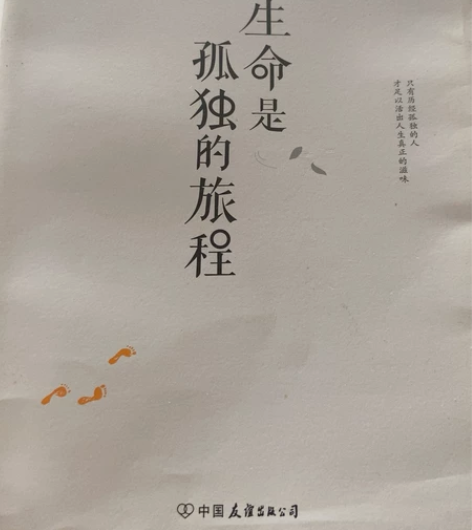 生命是
孤独的旅程
只有历经孤独的人
才足以活出人生真正的滋味
中国友谊出版公司